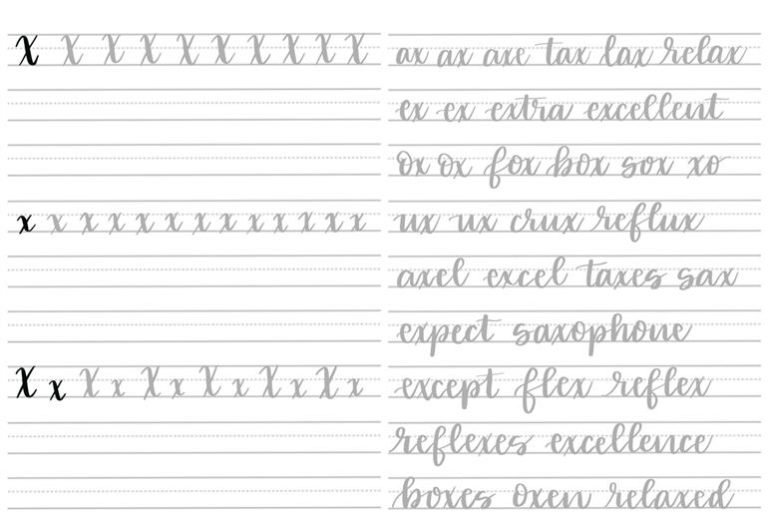 X X X X X X X X X X
x x x x x x x x x x x x x
X x X x X x X x X x X x
ax ax axe tax lax relax
ex ex extra excellent
ox ox fox box sox xo
ux ux crux reflux
axel excel taxes sax
expect saxophone
except flex reflex
reflexes excellence
boxes oxen relaxed